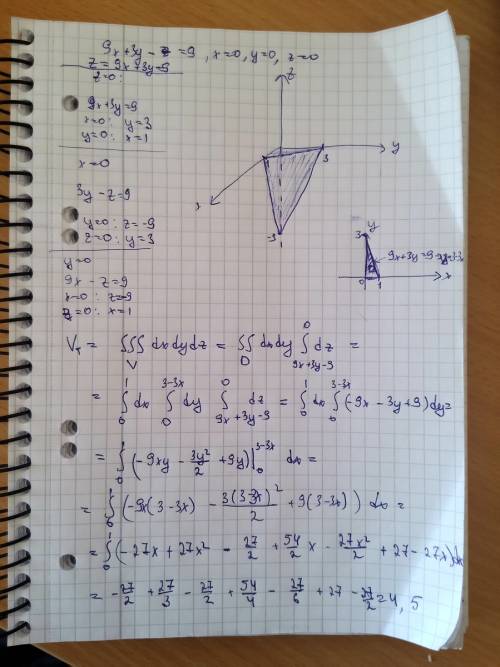 9x+3y-z=9, x=0, y=0, z=0
z=9x+3y-9
z=0:
9x+3y=9
x=0: y=3
y=0: x=1
x=0
3y-z=9
y=0: z=-9
z=0: y=3
y=0
9x-z=9
x=0: z=-9
z=0: x=1
z
y
1
3
y
3
0
1
x
V_T = ∭_V dxdydz = ∬_D dxdy ∫_{9x+3y-9}^{0} dz =
= ∫_0^1 dx ∫_0^{3-3x} dy ∫_{9x+3y-9}^{0} dz = ∫_0^1 dx ∫_0^{3-3x} (-9x-3y+9)dy=
= ∫_0^1 (-9xy - 3y²/2 + 9y)|_0^{3-3x} dx =
= ∫_0^1 (-9x(3-3x) - 3(3-3x)²/2 + 9(3-3x)) dx =
= ∫_0^1 (-27x + 27x² - 27/2 + 54/2 x - 27x²/2 + 27 - 27x)dx
= -27/2 + 27/3 - 27/2 + 54/4 - 27/6 + 27 - 27/2 = 4,5